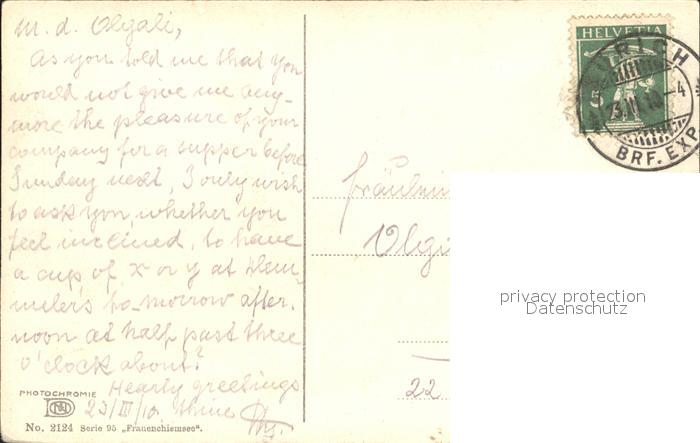 M. d. Olgali,
As you told me that you
would not give me any-
more the pleasure of your
company for a supper before
Sunday next, I only wish
to ask you, whether you
feel inclined, to have
a cup of x or y at
to-morrow after-
noon at half past three
o'clock about?
Hearty greetings
23/III/10. Thine
PHOTOCHROMIE
No. 2124 Serie 95 „Frauenchiemsee".
HELVETIA
5
ZÜRICH
BRF. EXP
Fräulein
22
privacy protection
Datenschutz